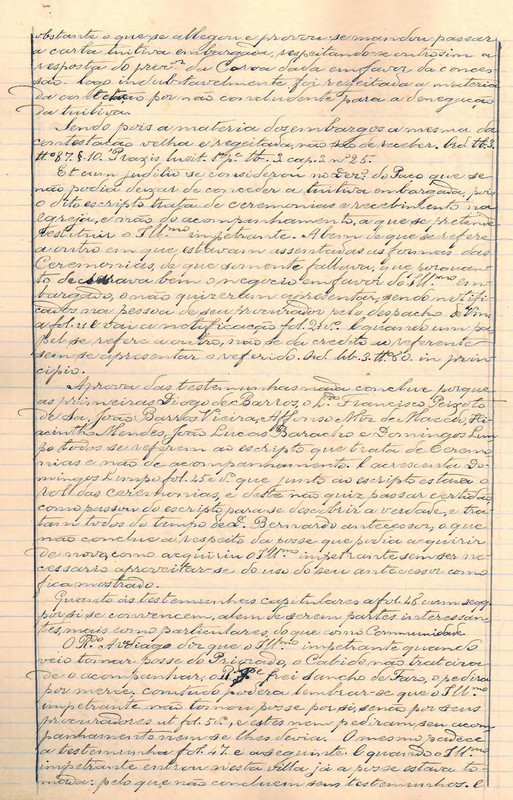 obstante o que se allegou e provou se mandou passar
a carta tuitiva embargada, respeitando-se outrosim a
resposta do procᵒʳ da Coroa dada em favor da conces-
são. Logo indubitavelmente foi regeitada a materia
da contestação por não concludente para a denegação
da tuitiva.
Sendo pois a materia dos embargos a mesma da
contestação velha e regeitada, não são de receber. Ord. lib. 3.
tt.º 87. §. 10. Praxis, Instit. 1ª p. tt. 3. cap. 2. nº 25.
E tam judillo se considerou no Dez.º do Paço que se
não podia deixar de conceder a tuitiva embargada, pois
o dito escripto trata de ceremonias e recebimento na
egreja, e não do acompanhamento, a que se pretende
restituir o Illᵐᵒ impetrante. Alem de que se refere
a outro em que estavam assentadas as formas das
Ceremonias, de que somente fallava, que porquan-
to declarava bem o negocio em favor do Illᵐᵒ em-
bargado, o não quizeram apresentar, sendo notifi-
cados na pessoa de seu procurador pelo despacho
a fol. 21 e vai a notificação fol. 21 vº. E quando um pa-
pel se refere a outro, não se dá credito ao referente
sem se apresentar o referido. Ord. lib. 3. tt.º 60. in prin-
cipio.
A prova das testemunhas nada conclue porque
as primeiras Diogo de Barros, o L.ᵈᵒ Francisco Peixoto
de Sa, João Barros Vieira, Affonso Miz de Macedo, Hia-
cintho Mendes, João Lucas Baracho e Domingos Lim-
po todos se referem ao escripto que trata de Ceremo-
nias e não de acompanhamento. E acrescenta Do-
mingos Limpo fol. 45 vº que junto ao escripto estava o
roll das ceremonias, e deste não quiz passar certidão
como passou do escripto para se descobrir a verdade, e tra-
tam todos do tempo de D. Bernardo antecessor, o que
não conclue a respeito da posse que podia adquirir
de novo, como adquiriu o Illᵐᵒ impetrante sem ser ne-
cessario aproveitar-se do uso do seu antecessor como
fica mostrado.
Quanto ás testemunhas capitulares a fol. 46 cum seqq.
por si se convencem, alem de serem partes interessan-
tes, mais como particulares, do que como Communidade.
O R.ᵈᵒ Arcediago diz que o Illᵐᵒ impetrante quando
veio tomar posse do Priorado, o Cabido não tratára
de o acompanhar, o P.ᵉ frei Sancho de Faro, o pedira
por mercê, comtudo podera lembrar-se que o Illᵐᵒ
impetrante não tomou posse por si, senão por seus
procuradores ut fol. 5 vº, e estes nem pediram, seu acom-
panhamento nem se lhes devia. O mesmo padece
a testemunha fol. 47 e a seguinte. E quando o Illᵐᵒ
impetrante entrou nesta Villa já a posse estava to-
mada: pelo que não concluem seus testemunhos. E